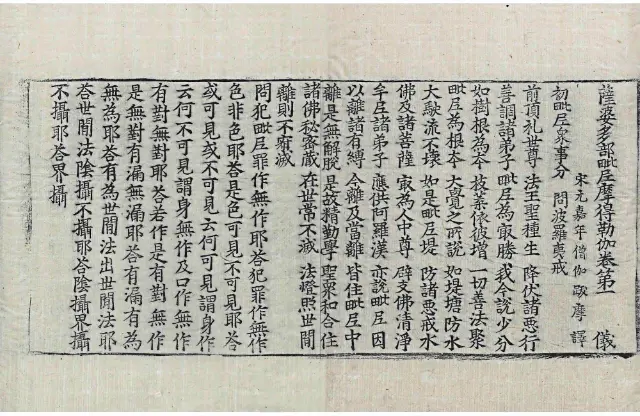 薩婆多部毗尼摩得勒伽卷第一 儀
宋元嘉年僧伽跋摩譯
初毗尼衆事分 問波羅夷戒
前頂礼世尊 法王聖種生 降伏諸惡行
善調諸弟子 毗尼為㝡勝 我今說少分
如樹根為本 枝柔依彼增 一切善法聚
毗尼為根本 大覺之所說 如堤塘防水
大駛流不壞 如是毗尼堤 防諸惡戒水
佛及諸菩薩 㝡為人中尊 辟支佛清淨
牟尼諸弟子 應供阿羅漢 亦說毗尼因
以離諸有縛 今離及當離 皆住毗尼中
離是無解脫 是故精勤學 聖衆和合住
諸佛秘密藏 在世常不滅 法燈照世間
離則不磨滅
問犯毗尼罪作無作耶荅犯罪作無作
色非色耶荅是色可見不可見耶荅
或可見或不可見云何可見謂身作
云何不可見謂身無作及口作無作
有對無對耶荅若作是有對無作
是無對有漏無漏耶荅有漏有為
無為耶荅有為世間法出世間法耶
荅世間法陰攝不攝耶荅陰攝界攝
不攝耶荅界攝